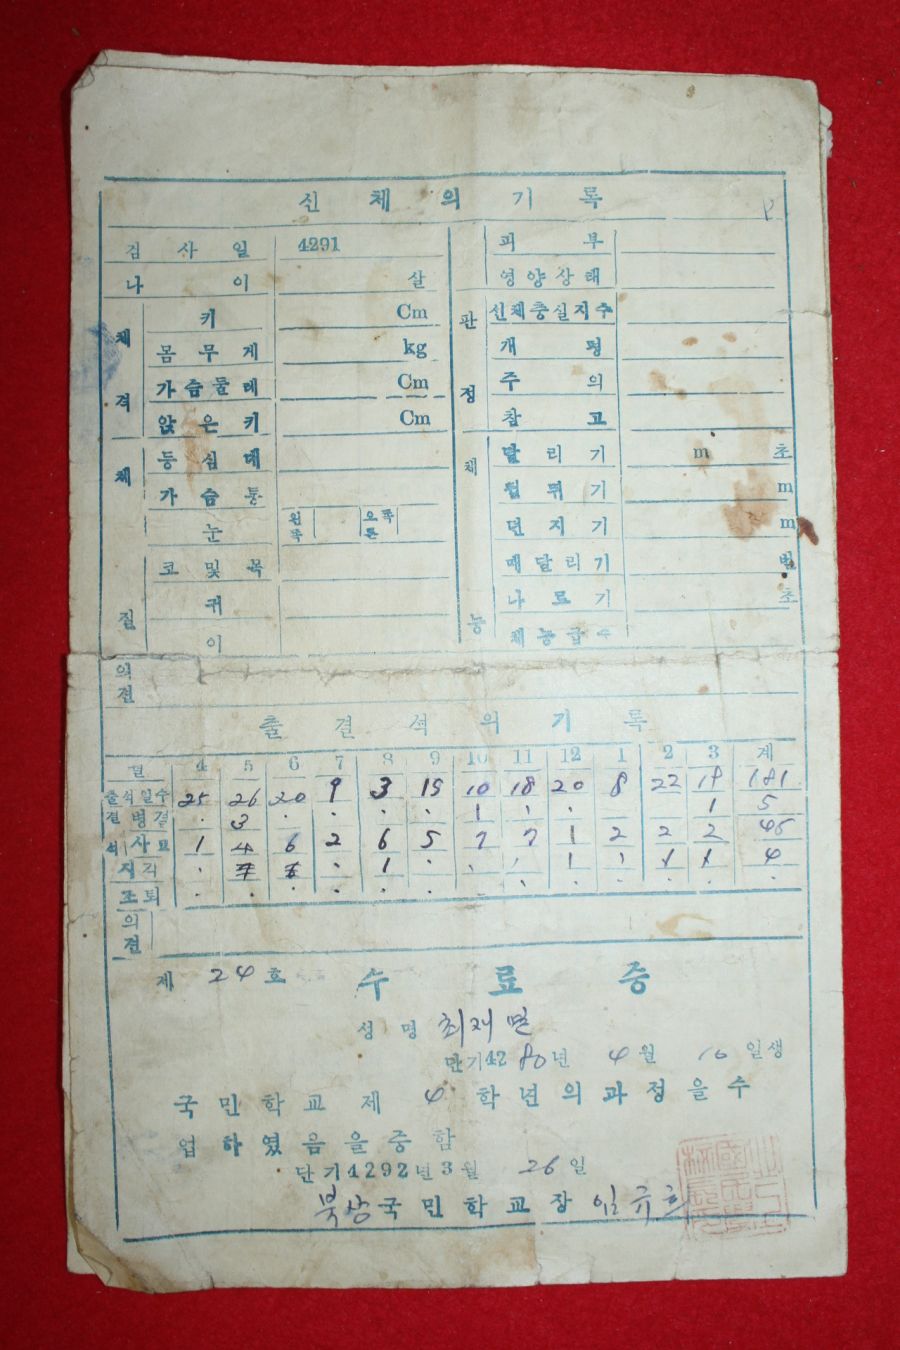 신체의기록
검사일 4291
나이 살
체격
키 Cm
몸무게 kg
가슴둘레 Cm
앉은키 Cm
체질
등심대
가슴통
눈 왼쪽 오른쪽
코및목
귀
이
판정
피부
영양상태
신체충실지수
개평
주의
참고
체능
달리기 m 초
넓뛰기 m
던지기 m
매달리기 번
나르기 초
체능급수
의견
출결석의기록
월 4 5 6 7 8 9 10 11 12 1 2 3 계
출석일수 25 26 20 9 3 19 10 18 20 8 22 19 181
결석 병결 · 3 · · · · 1 · · 1 5
사고 1 4 6 2 6 5 7 7 1 2 2 2 45
지각 1 1 4
조퇴
의견
제 24 호 수료증
성명 최재
단기42 80년 4월 10일생
국민학교 제 4 학년의과정을수
업하였음을증함
단기4292년3월 26일
북상국민학교장 임규희